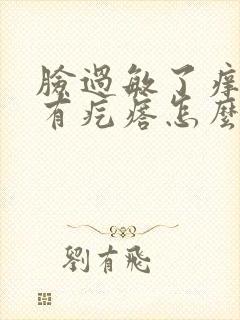 臉過敏了痒
有疙瘩怎麼
劉有飛